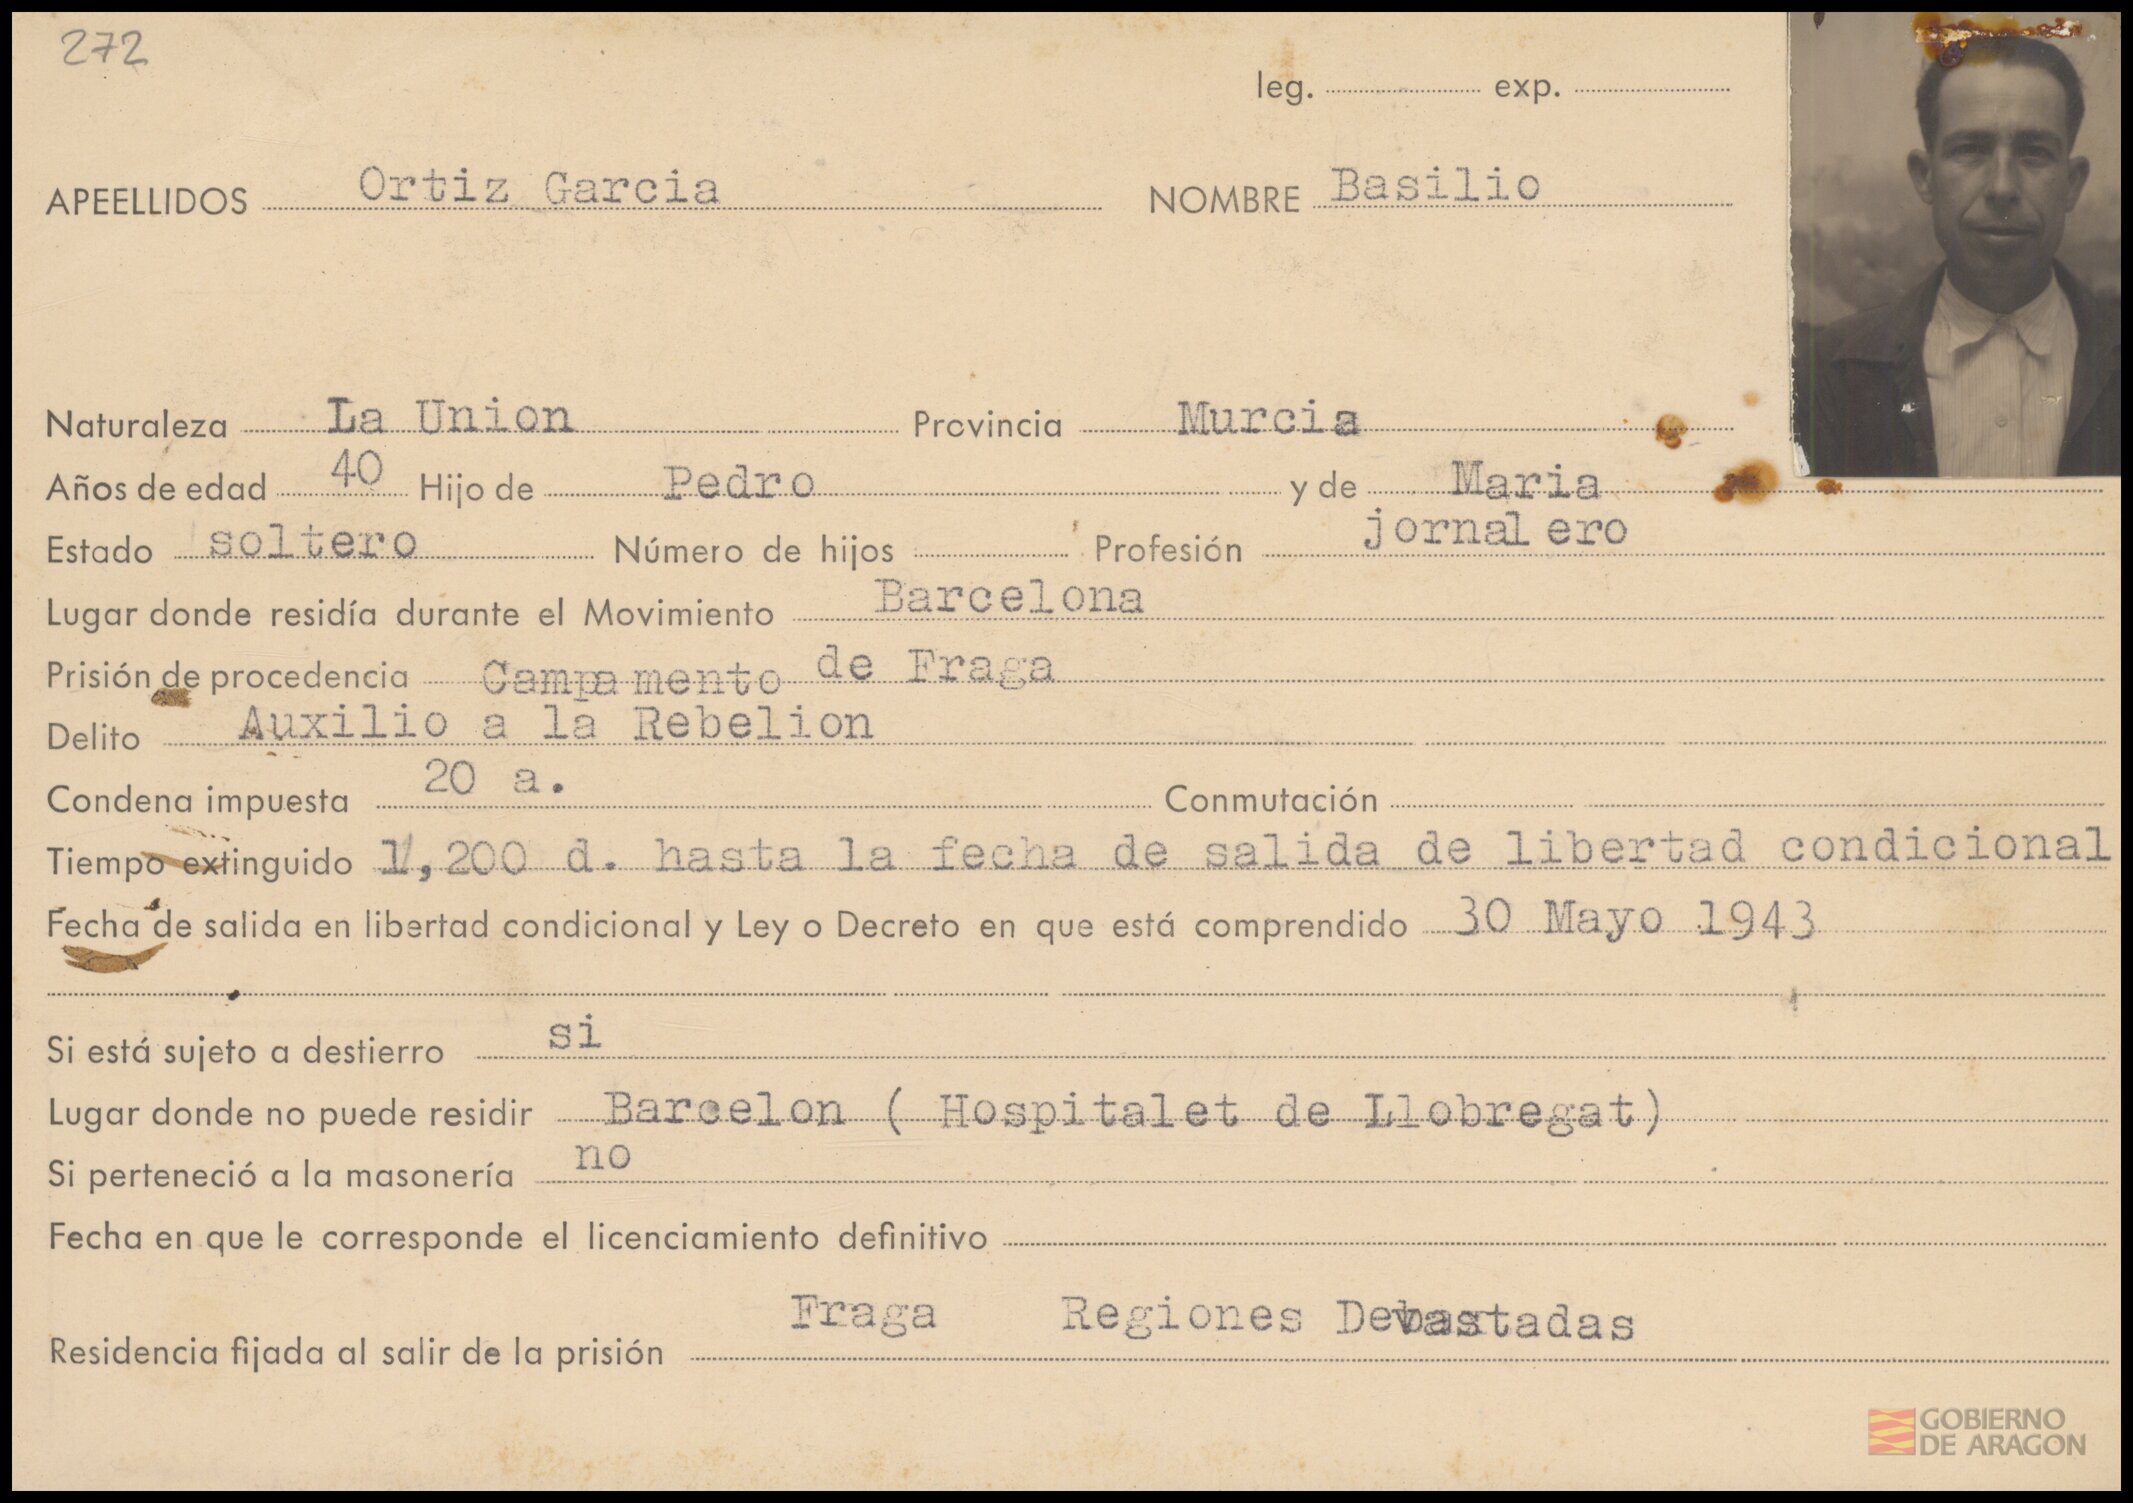 272
leg. exp.
APEELLIDOS Ortiz Garcia NOMBRE Basilio
Naturaleza La Union Provincia Murcia
Años de edad 40 Hijo de Pedro y de Maria
Estado soltero Número de hijos Profesión jornalero
Lugar donde residía durante el Movimiento Barcelona
Prisión de procedencia Campamento de Fraga
Delito Auxilio a la Rebelion
Condena impuesta 20 a. Conmutación
Tiempo extinguido 1,200 d. hasta la fecha de salida de libertad condicional
Fecha de salida en libertad condicional y Ley o Decreto en que está comprendido 30 Mayo 1943
Si está sujeto a destierro si
Lugar donde no puede residir Barcelon ( Hospitalet de Llobregat)
Si perteneció a la masonería no
Fecha en que le corresponde el licenciamiento definitivo
Residencia fijada al salir de la prisión Fraga Regiones Devastadas
GOBIERNO
DE ARAGON